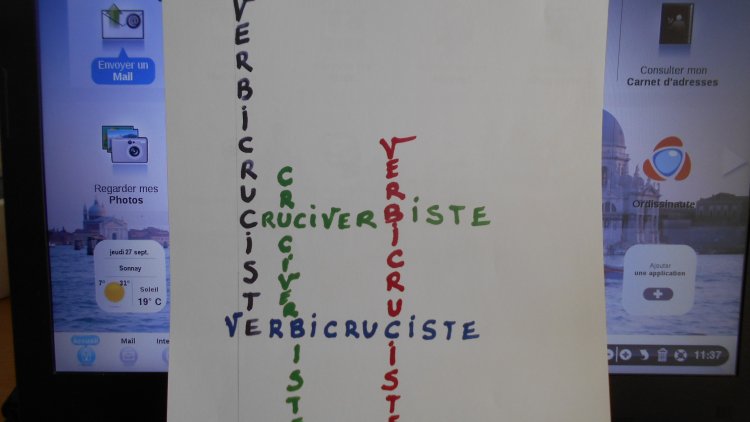 Envoyer un
Mail
Regarder mes
Photos
jeudi 27 sept.
Sonnay
7° 31°
Soleil
19° C
Accueil
Mail
Inte
VERBiCRUCiSTE
CRUCiVERBiSTE
VERBiCRUCiSTE
CRUCiVERBiSTE
VERBiCRUCiSTE
Consulter mon
Carnet d'adresses
Ordissinaute
Ajouter
une application
11:37